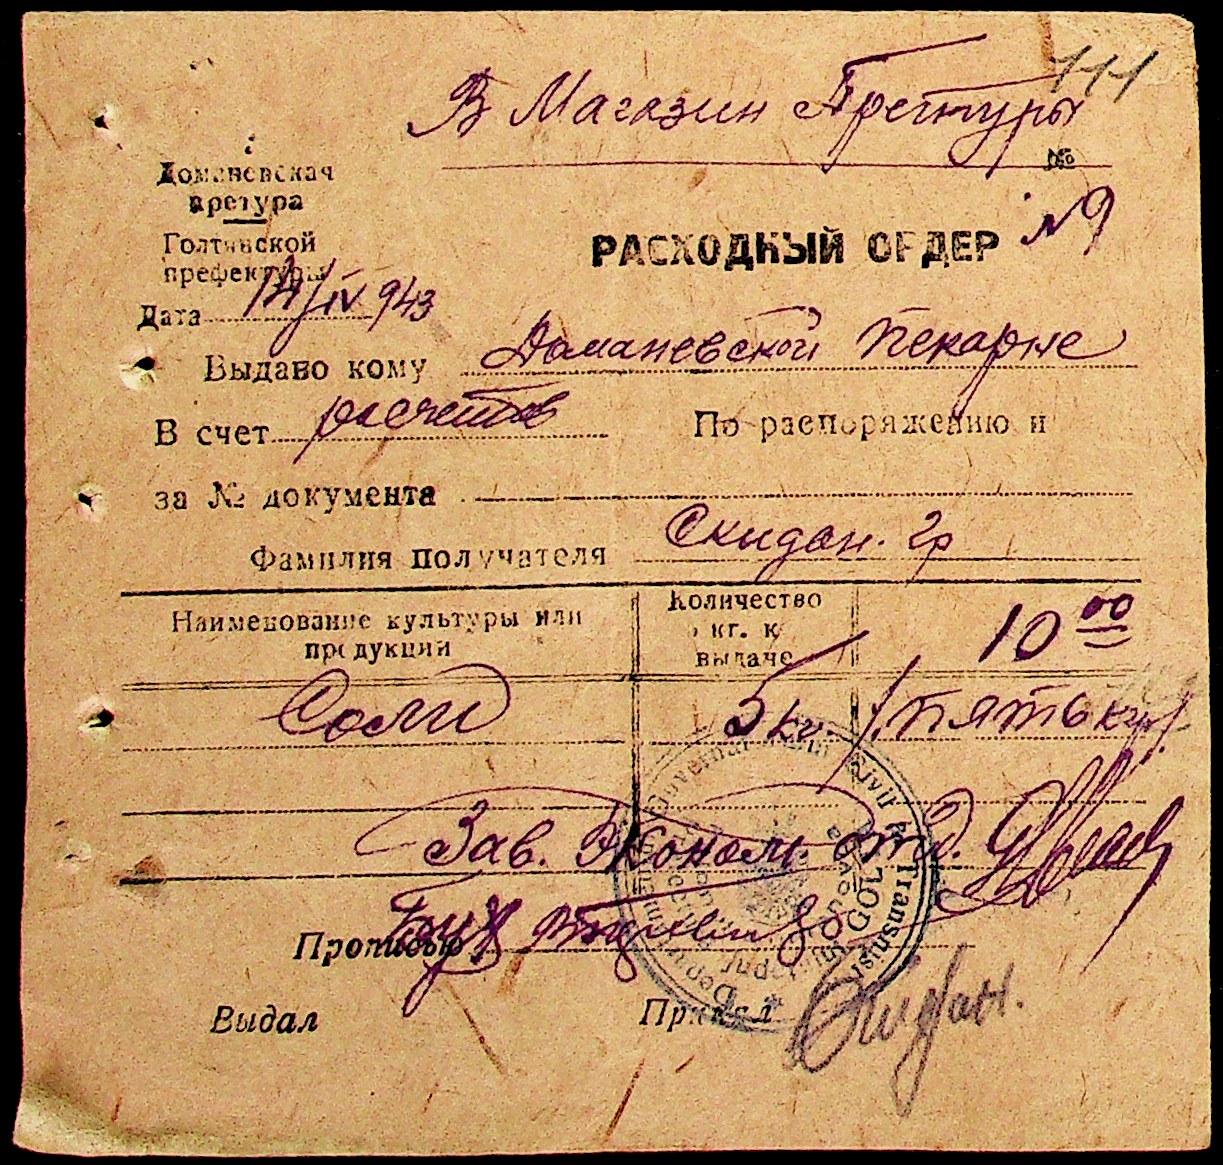 111
В Магазин Претуры
№
Доманевская
претура
Голтянской
префектуры
РАСХОДНЫЙ ОРДЕР №9
Дата 14/IV 943
Выдано кому Доманевской пекарне
В счет расчетов По распоряжению и
за № документа
Фамилия получателя Скидан. гр
Наименование культуры или продукции
Количество кг. к выдаче
10 00
Соли 5 кг. /пять кил/
Зав. Эконом. отд.
Бух
Прописью
Выдал Принял Скидан.
Guvernământul Civil al Transnistriei
GOLTA